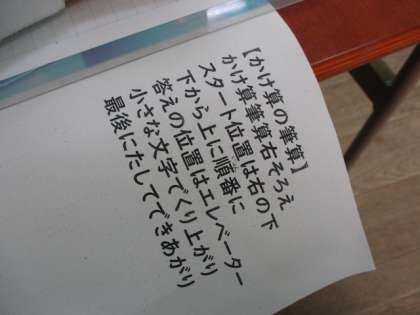 【かけ算の筆算】
かけ算筆算右そろえ
スタート位置は右の下
下から上に順番に
答えの位置はエレベーター
小さな文字でくり上がり
最後にたしてできあがり